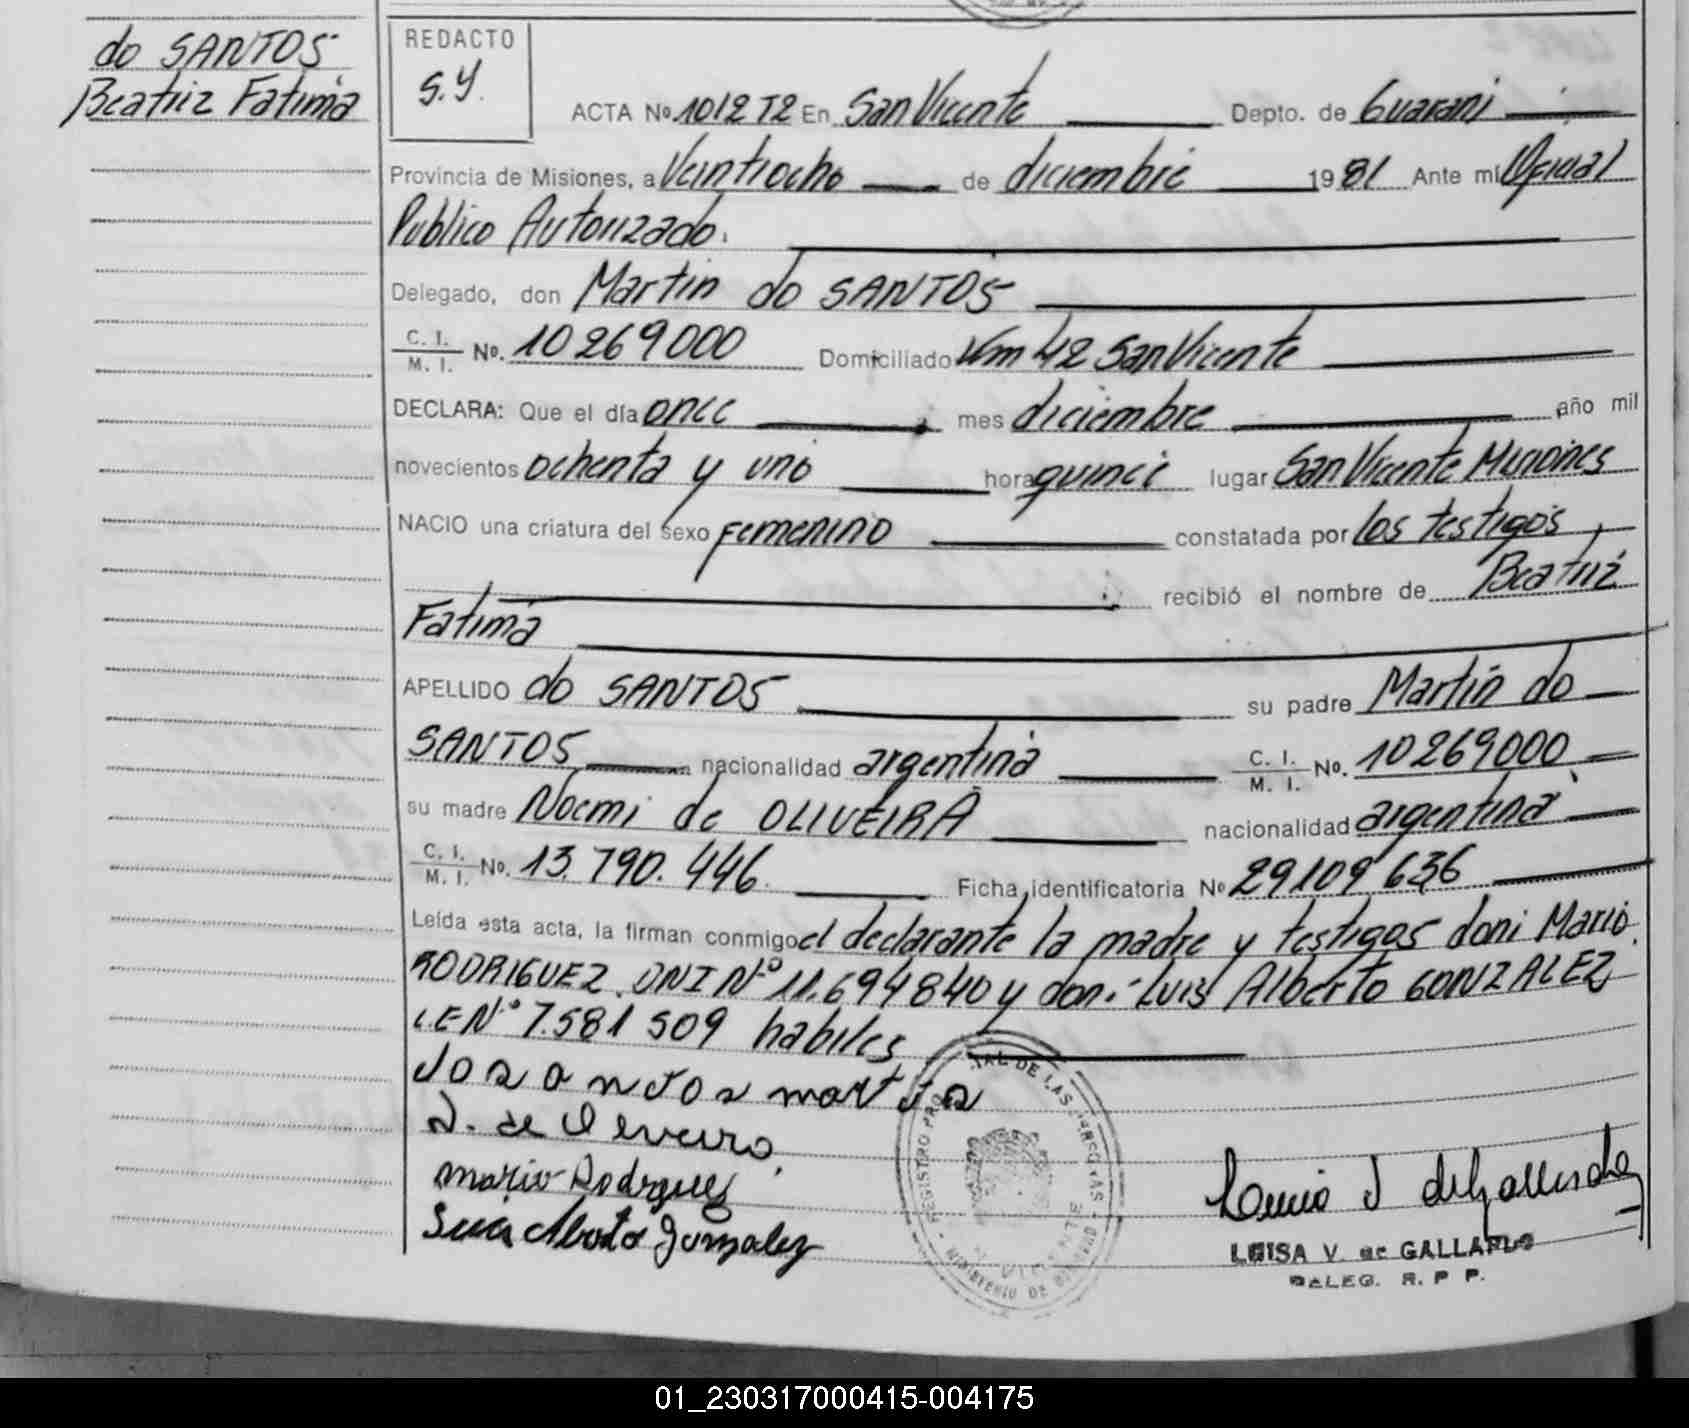 do SANTOS
Beatriz Fatima
REDACTO
S.Y.
ACTA No 1012 T2 En San Vicente Depto. de Guarani
Provincia de Misiones, a Veintiocho de diciembre 1981 Ante mi Oficial
Publico Autorizado.
Delegado, don Martin do SANTOS
C. I. / M. I. No. 10269000 Domiciliado Km 42 San Vicente
DECLARA: Que el día once mes diciembre año mil
novecientos ochenta y uno hora quince lugar San Vicente Misiones
NACIO una criatura del sexo Femenino constatada por los testigos,
recibió el nombre de Beatriz
Fatima
APELLIDO do SANTOS su padre Martin do
SANTOS nacionalidad argentina C. I. / M. I. No. 10269000
su madre Noemi de OLIVEIRA nacionalidad argentina
C. I. / M. I. No. 13.790.446. Ficha identificatoria No 29109636
Leída esta acta, la firman conmigo el declarante la madre y testigos don: Mario
RODRIGUEZ DNI Nº 11.694840 y don: Luis Alberto GONZALEZ
L.E Nº 7.581 509 habiles
dos antos martin
Mario Rodrigues
Luis Alberto Gonzalez
REGISTRO PRO IAL DE LAS PERSONAS
MINISTERIO DE GOBIERNO
VICENTE
LUISA V. de GALLARDO
DELEG. R. P. P.
01_230317000415-004175